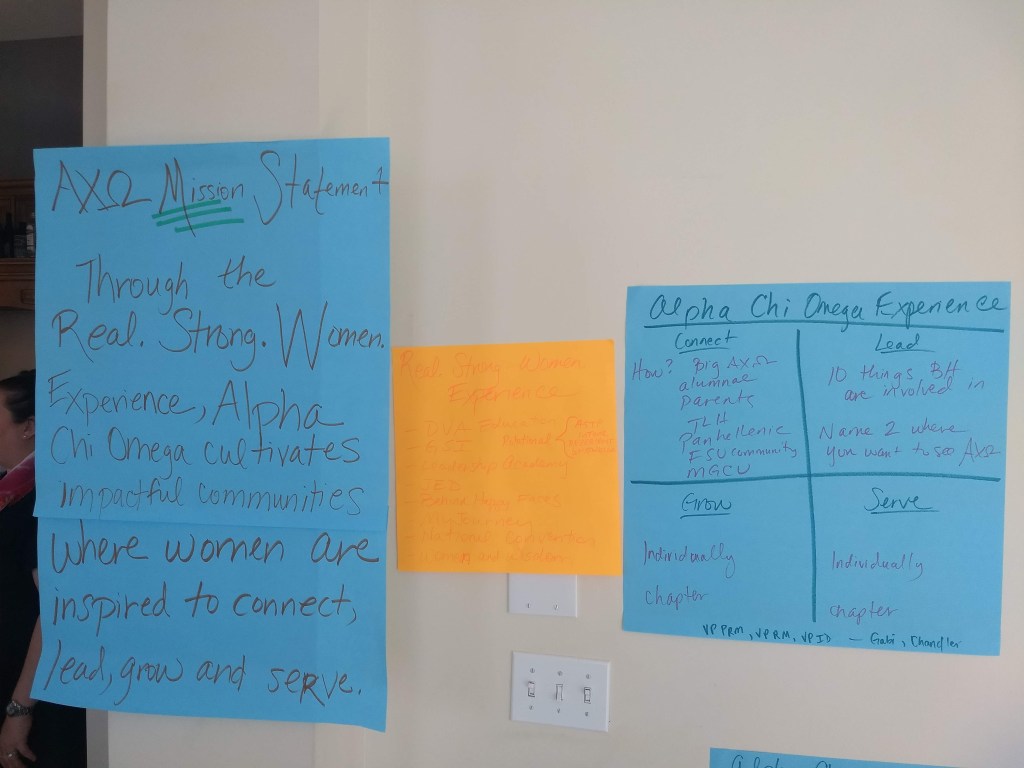 AΧΩ Mission Statement
Through the
Real. Strong. Women.
Experience, Alpha
Chi Omega cultivates
impactful communities
where women are
inspired to connect,
lead, grow and serve.
Real Strong Women
Experience
- DVA Education
- Leadership Academy
- JED
- Behind Happy Faces
- My Journey
- National
- Women and
Alpha Chi Omega Experience
Connect
How? Big AΧΩ
alumnae
parents
TLH
Panhellenic
FSU community
MGCU
Lead
10 things BH
are involved in
Name 2 where
you want to see AΧΩ
Grow
Individually
chapter
Serve
Individually
chapter
VPPRM, VPRM, VPID — Gabi, Chandler